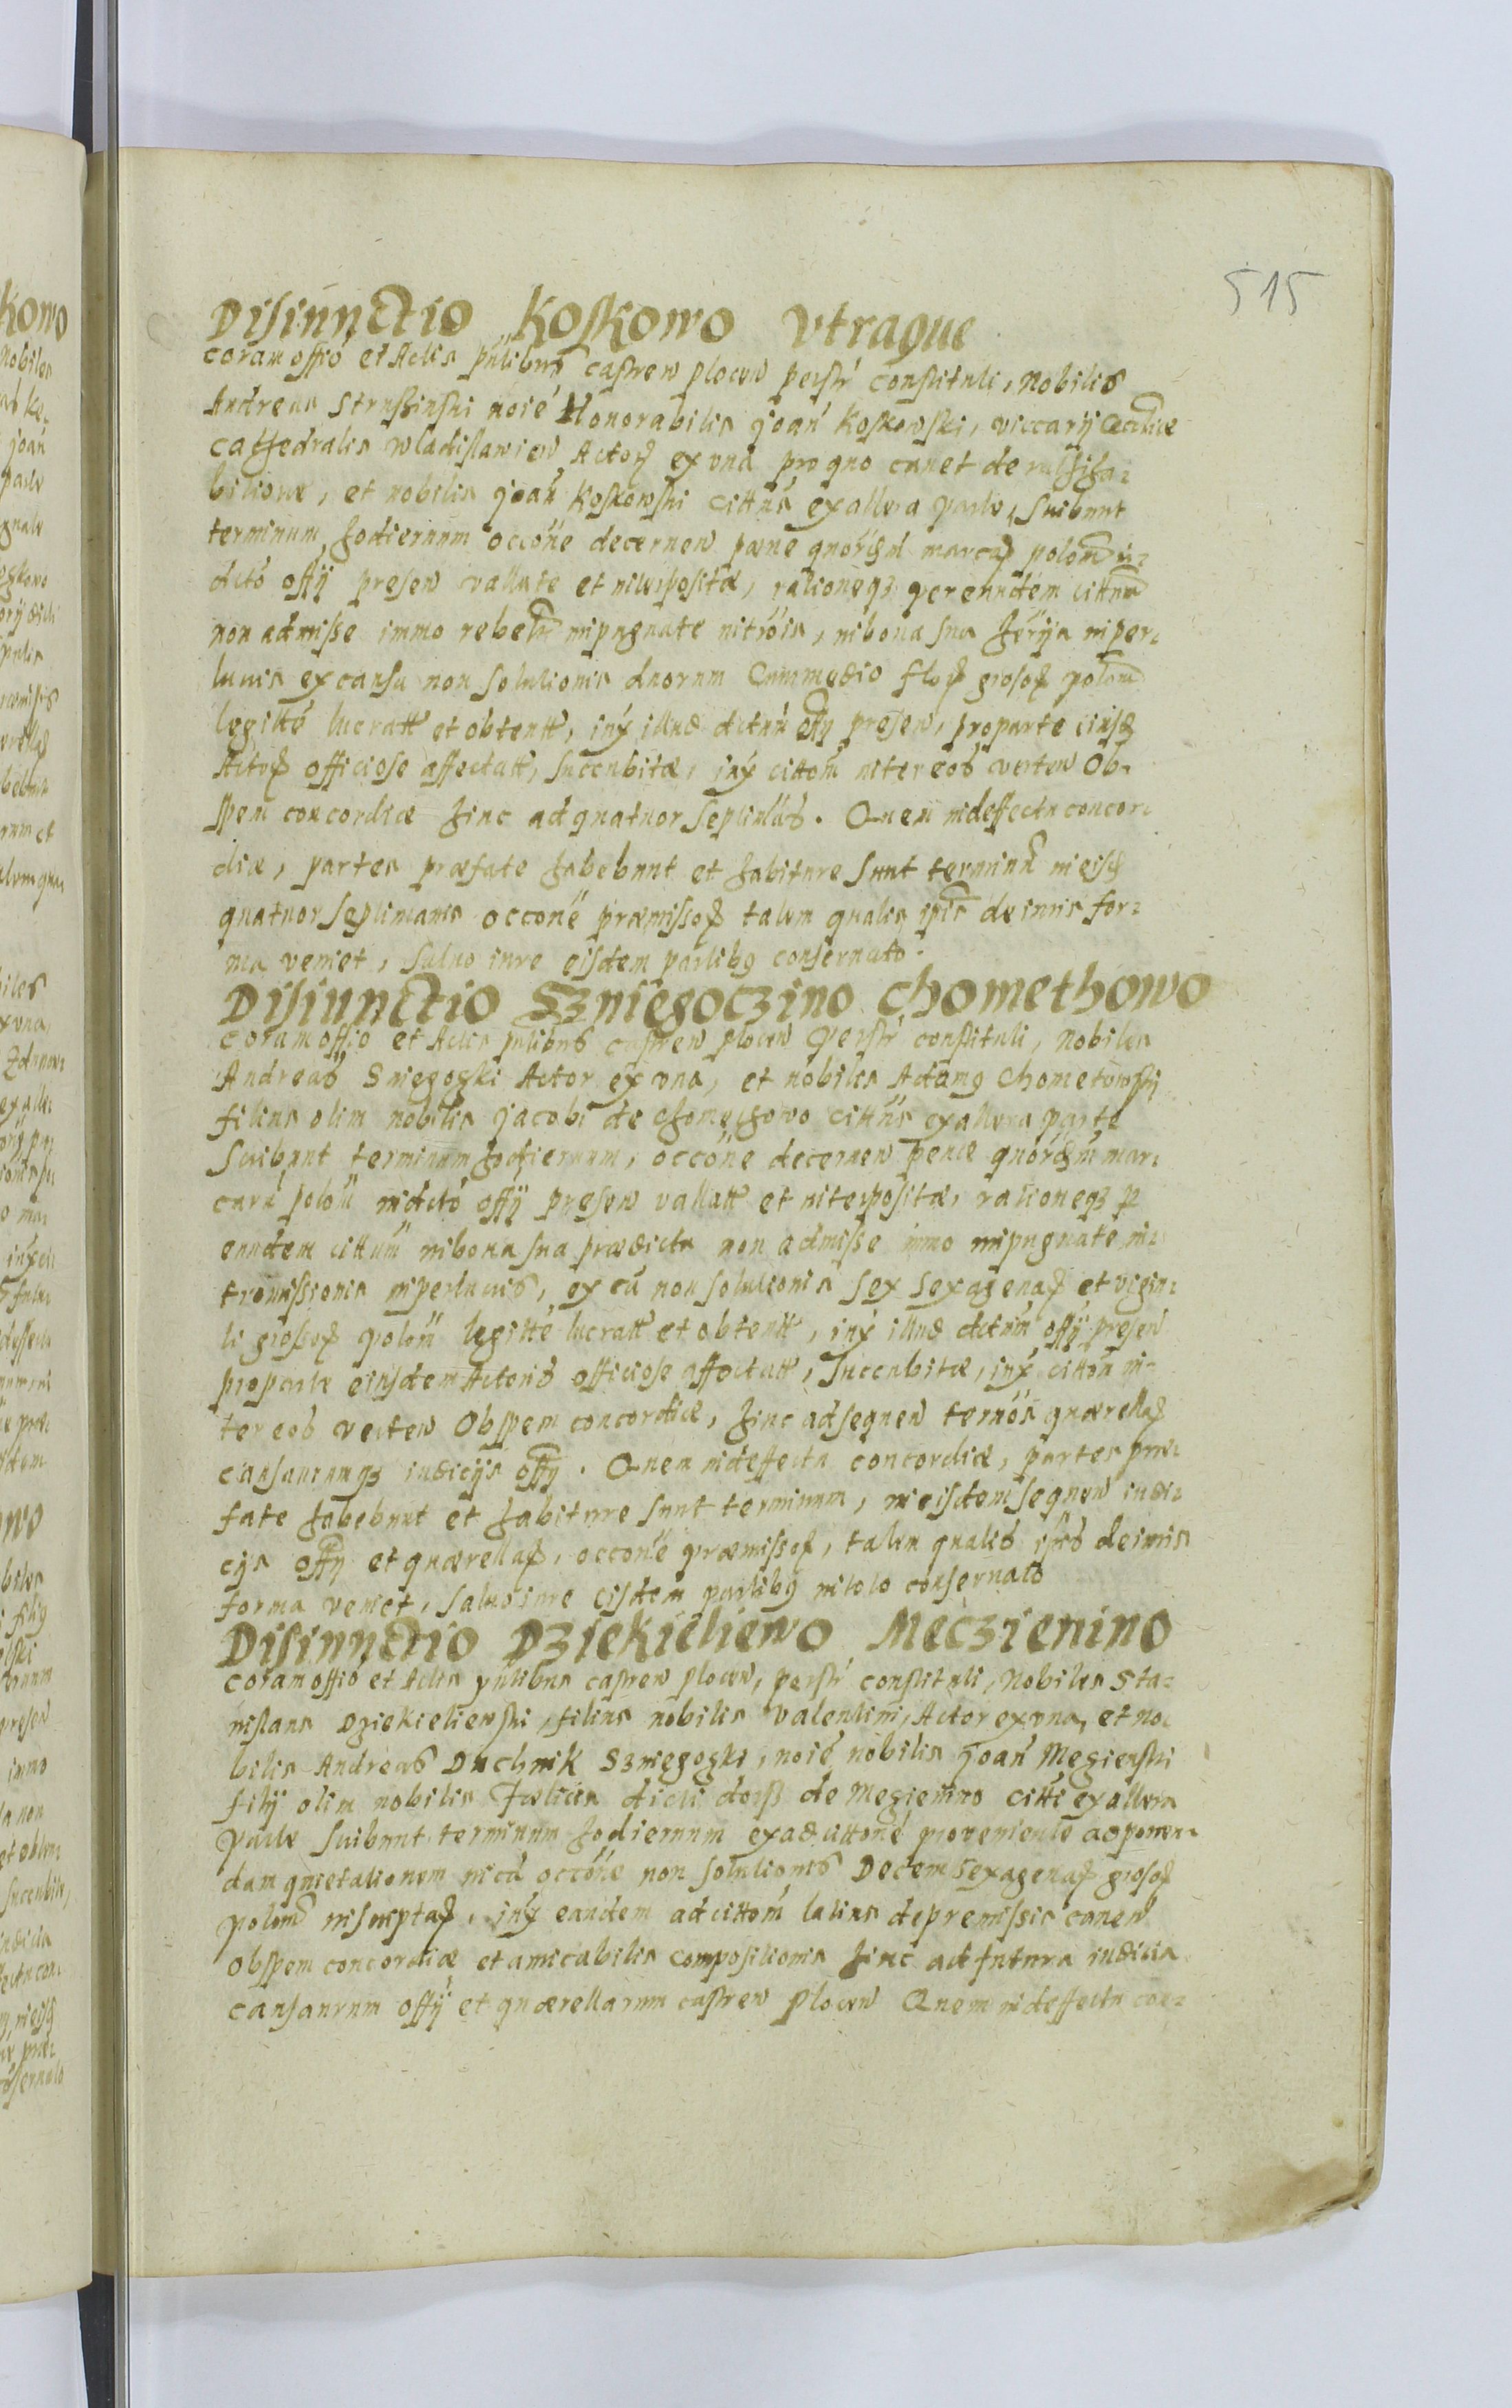 515
Disiunctio Koskowo Vtraque
coram offió et Actis pñtibus castren plocen perstr constituti, Nobilis
Andreas Strußinski nóié Honorabilis joan Koskowski, viccarij
cathedralis wladislawien Actor ex vna pro quo canet de rathiha⸗
bitione, et nobilis joan Koskowski cittus ex altera parte, Suibunt
terminum hodiernum occóne decernen pæne marcar polon in⸗
dictó offij presen vallate et interposite, rationeqz per eundem cittum
non admisse immo rebell impugnate intróis, in bona sua in per⸗
lucris ex causa non solutionis duorum Cummedio flor grosor polon
legitté lucratt et obtentt, inx illud dictum offij presen, pro parte eiusd
Actor officiose affectatt, Succubitæ, inx cittom inter eos verten Ob⸗
spem concordiæ hinc ad quatuor Septimas. Quem in deffectu concor⸗
diæ, partes præfate habebunt et habiture Sunt terminum in eisd
quatuor septimanis occoné præmissor talem qualis ipis de iuris for⸗
ma veniet, Saluo iure eisdem partibus conseruato.
Disiunctio Szniegoczino Chomethowo
Coram offio et Actis pntibus castren plocen perstr constituti, Nobiles
Andreas Sniegoczki Actor ex vna, et nobilis Adamg Chometowski
filius olim nobilis jacobi de Chomethowo cittus ex altera parte
Suibunt terminum hodiernum, occóne decernen penæ mar⸗
carú polon in dictó offij presen vallatt et interpositæ, rationeqz p
eundem cittum in bona sua prædicta non admisse immo impugnate in⸗
tromissionis in perlucris, ex cu non solutionis sex sexagenar et vigin⸗
ti grosor polon legitté lucratt et obtentt, inx illud dictum offij presen
pro parte eiusdem Actoris officiose affectatt, Succubitæ, inx cittom in⸗
ter eos verten Obspem concordiæ, hinc ad sequen ternos quærellar
causarumqz iudicijs offij. Quem in deffectu concordiæ, partes præ⸗
fate habebunt et habiture Sunt terminum, in eisdem sequen iudi⸗
cijs offij et quærellar, occoné præmissor, talem qualis ipis de iuris
forma veniet, saluo iure eisdem partibus in toto conseruato
Disiunctio Dziekieliewo Meczienino
Coram offió et Actis pntibus castren plocen, perstr constituti, Nobiles Sta⸗
nislaus Dziekieliewski, filius nobilis Valentini, Actor ex vna, et no⸗
bilis Andreas Duchnik Szniegoczki, nóié nobilis joan Megienski
filij olim nobilis Fælicis dicti de Megienino citti ex altera
parte Suibunt terminum hodiernum ex ad cittoné proueniente ad ponen⸗
dam quietationem occóne non solutionis Decem sexagenar grosor
polon inscriptar, inx eandem ad cittom latius de premissis canen
obspem concordiæ et amicabilis compositionis hinc ad futura iudicia
causarum offij et quærellarum castren Plocen Quem in deffectu con⸗